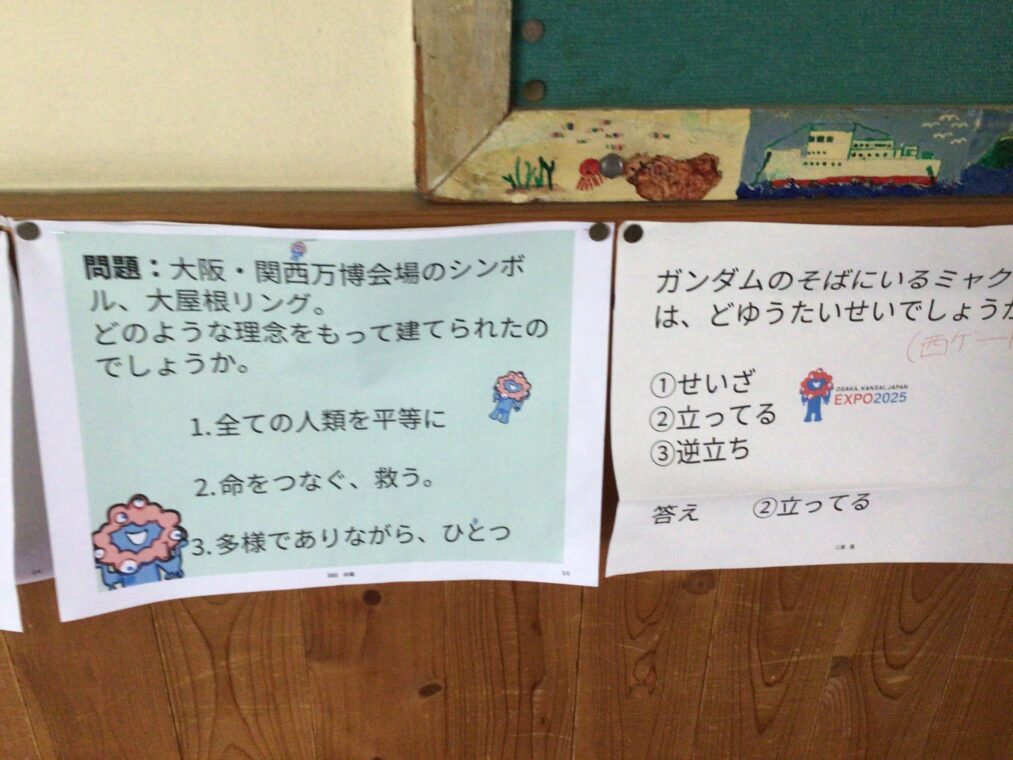 問題：大阪・関西万博会場のシンボ
ル、大屋根リング。
どのような理念をもって建てられたの
でしょうか。
1.全ての人類を平等に
2.命をつなぐ、救う。
3.多様でありながら、ひとつ
ガンダムのそばにいるミャク
は、どゆうたいせいでしょうか
(西ゲート
①せいざ
②立ってる
③逆立ち
OSAKA, KANSAI, JAPAN
EXPO2025
答え ②立ってる